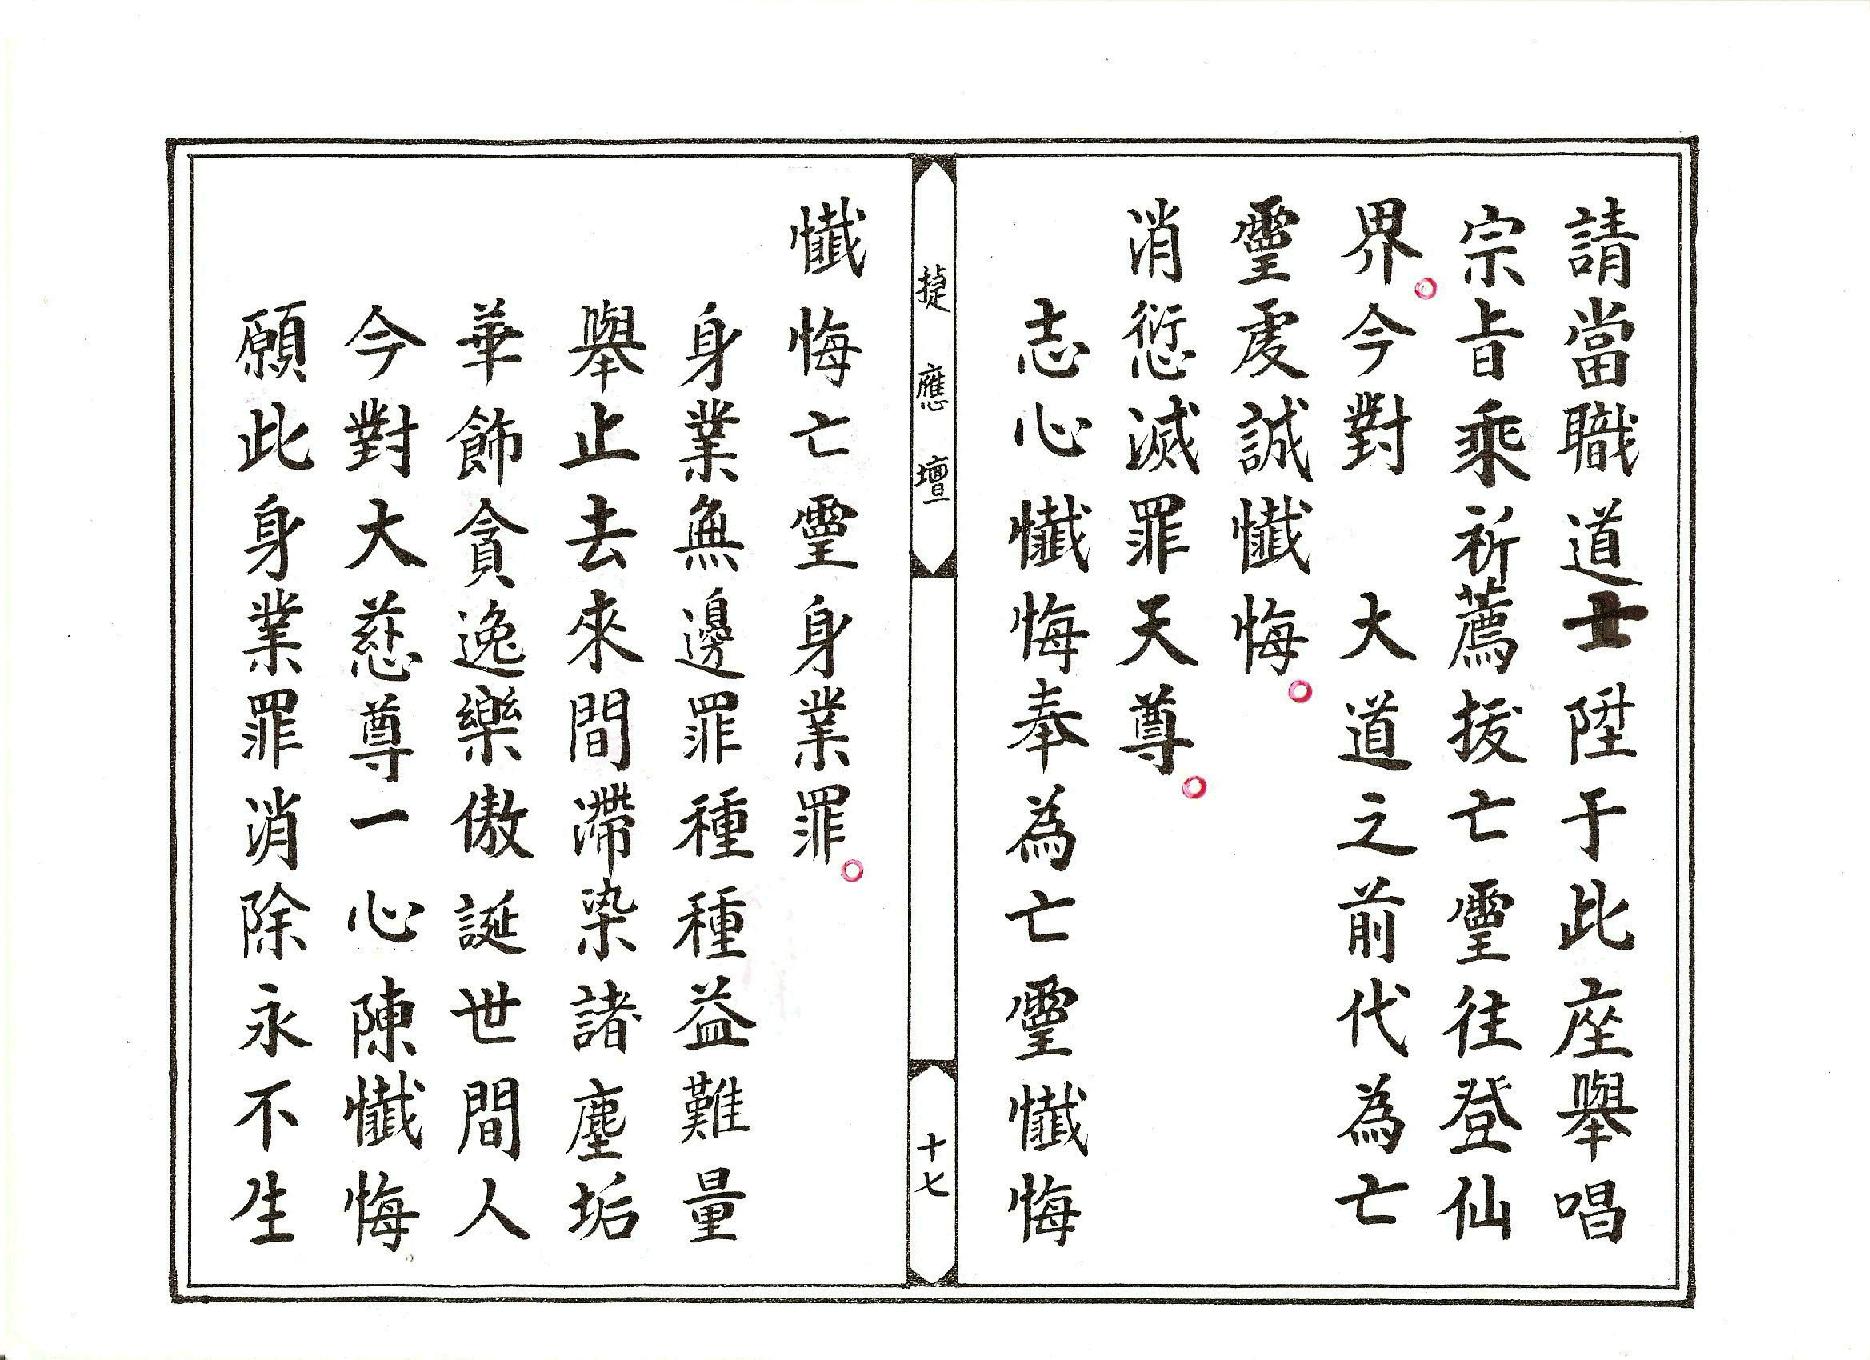 請當職道士陞于此座舉唱
宗旨乘祈薦拔亡靈往登仙
界。今對　大道之前代為亡
靈虔誠懺悔。
消愆滅罪天尊。
志心懺悔奉為亡靈懺悔
捷應壇
十七
懺悔亡靈身業罪。
身業無邊罪種種益難量
舉止去來間滯染諸塵垢
華飾貪逸樂傲誕世間人
今對大慈尊一心陳懺悔
願此身業罪消除永不生